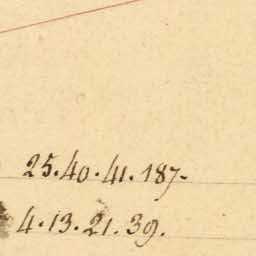 25.40.41.187-
4.13.21.39.